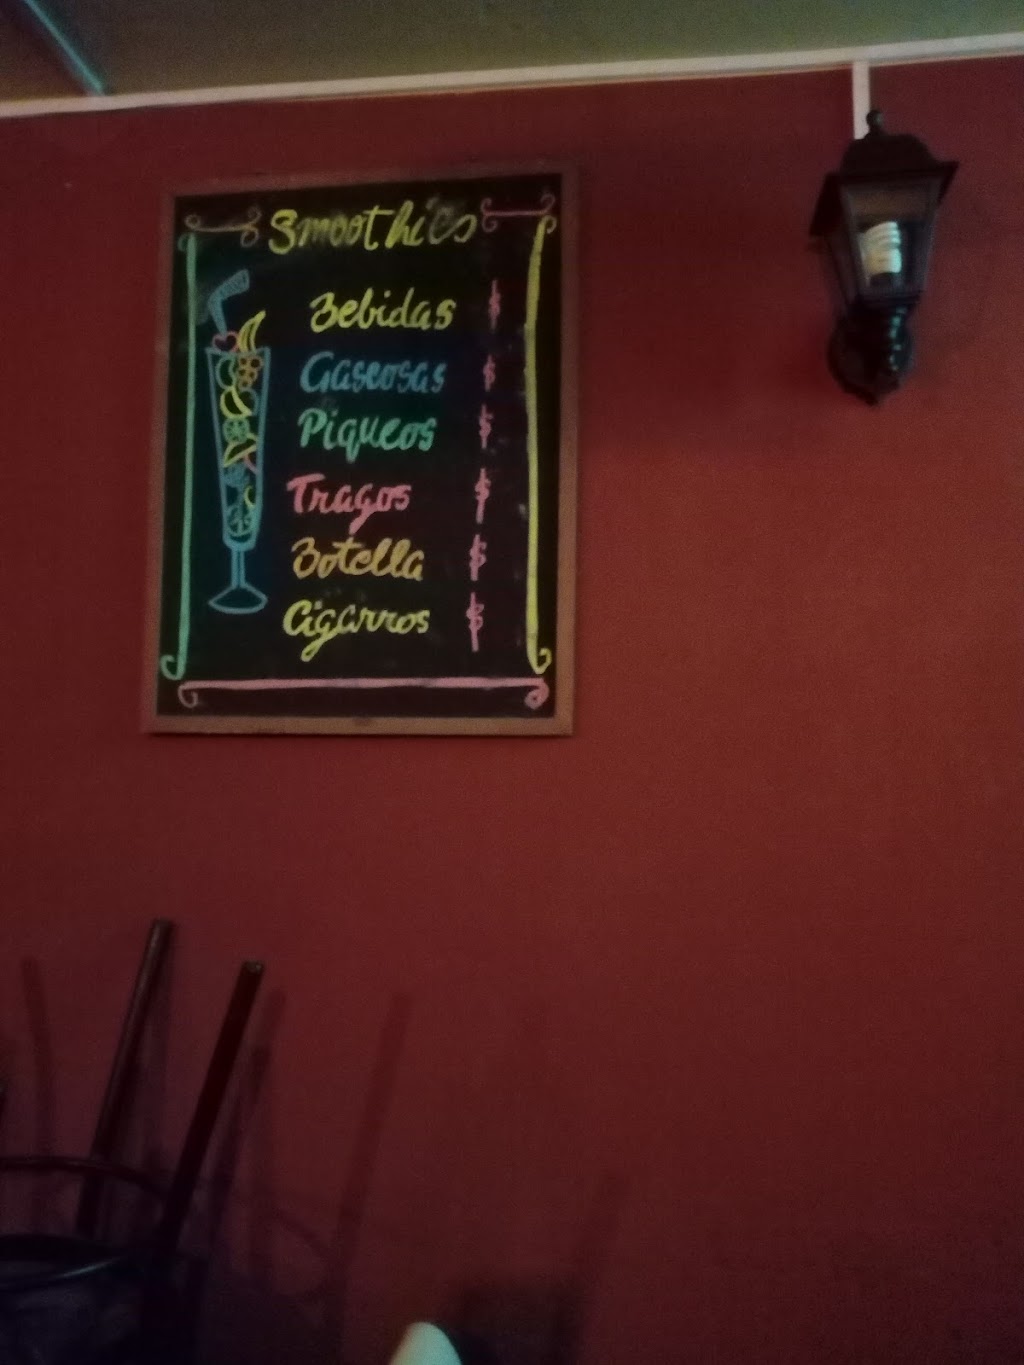 Smoothies
Bebidas $
Gaseosas $
Piqueos $
Tragos $
Botella $
Cigarros $